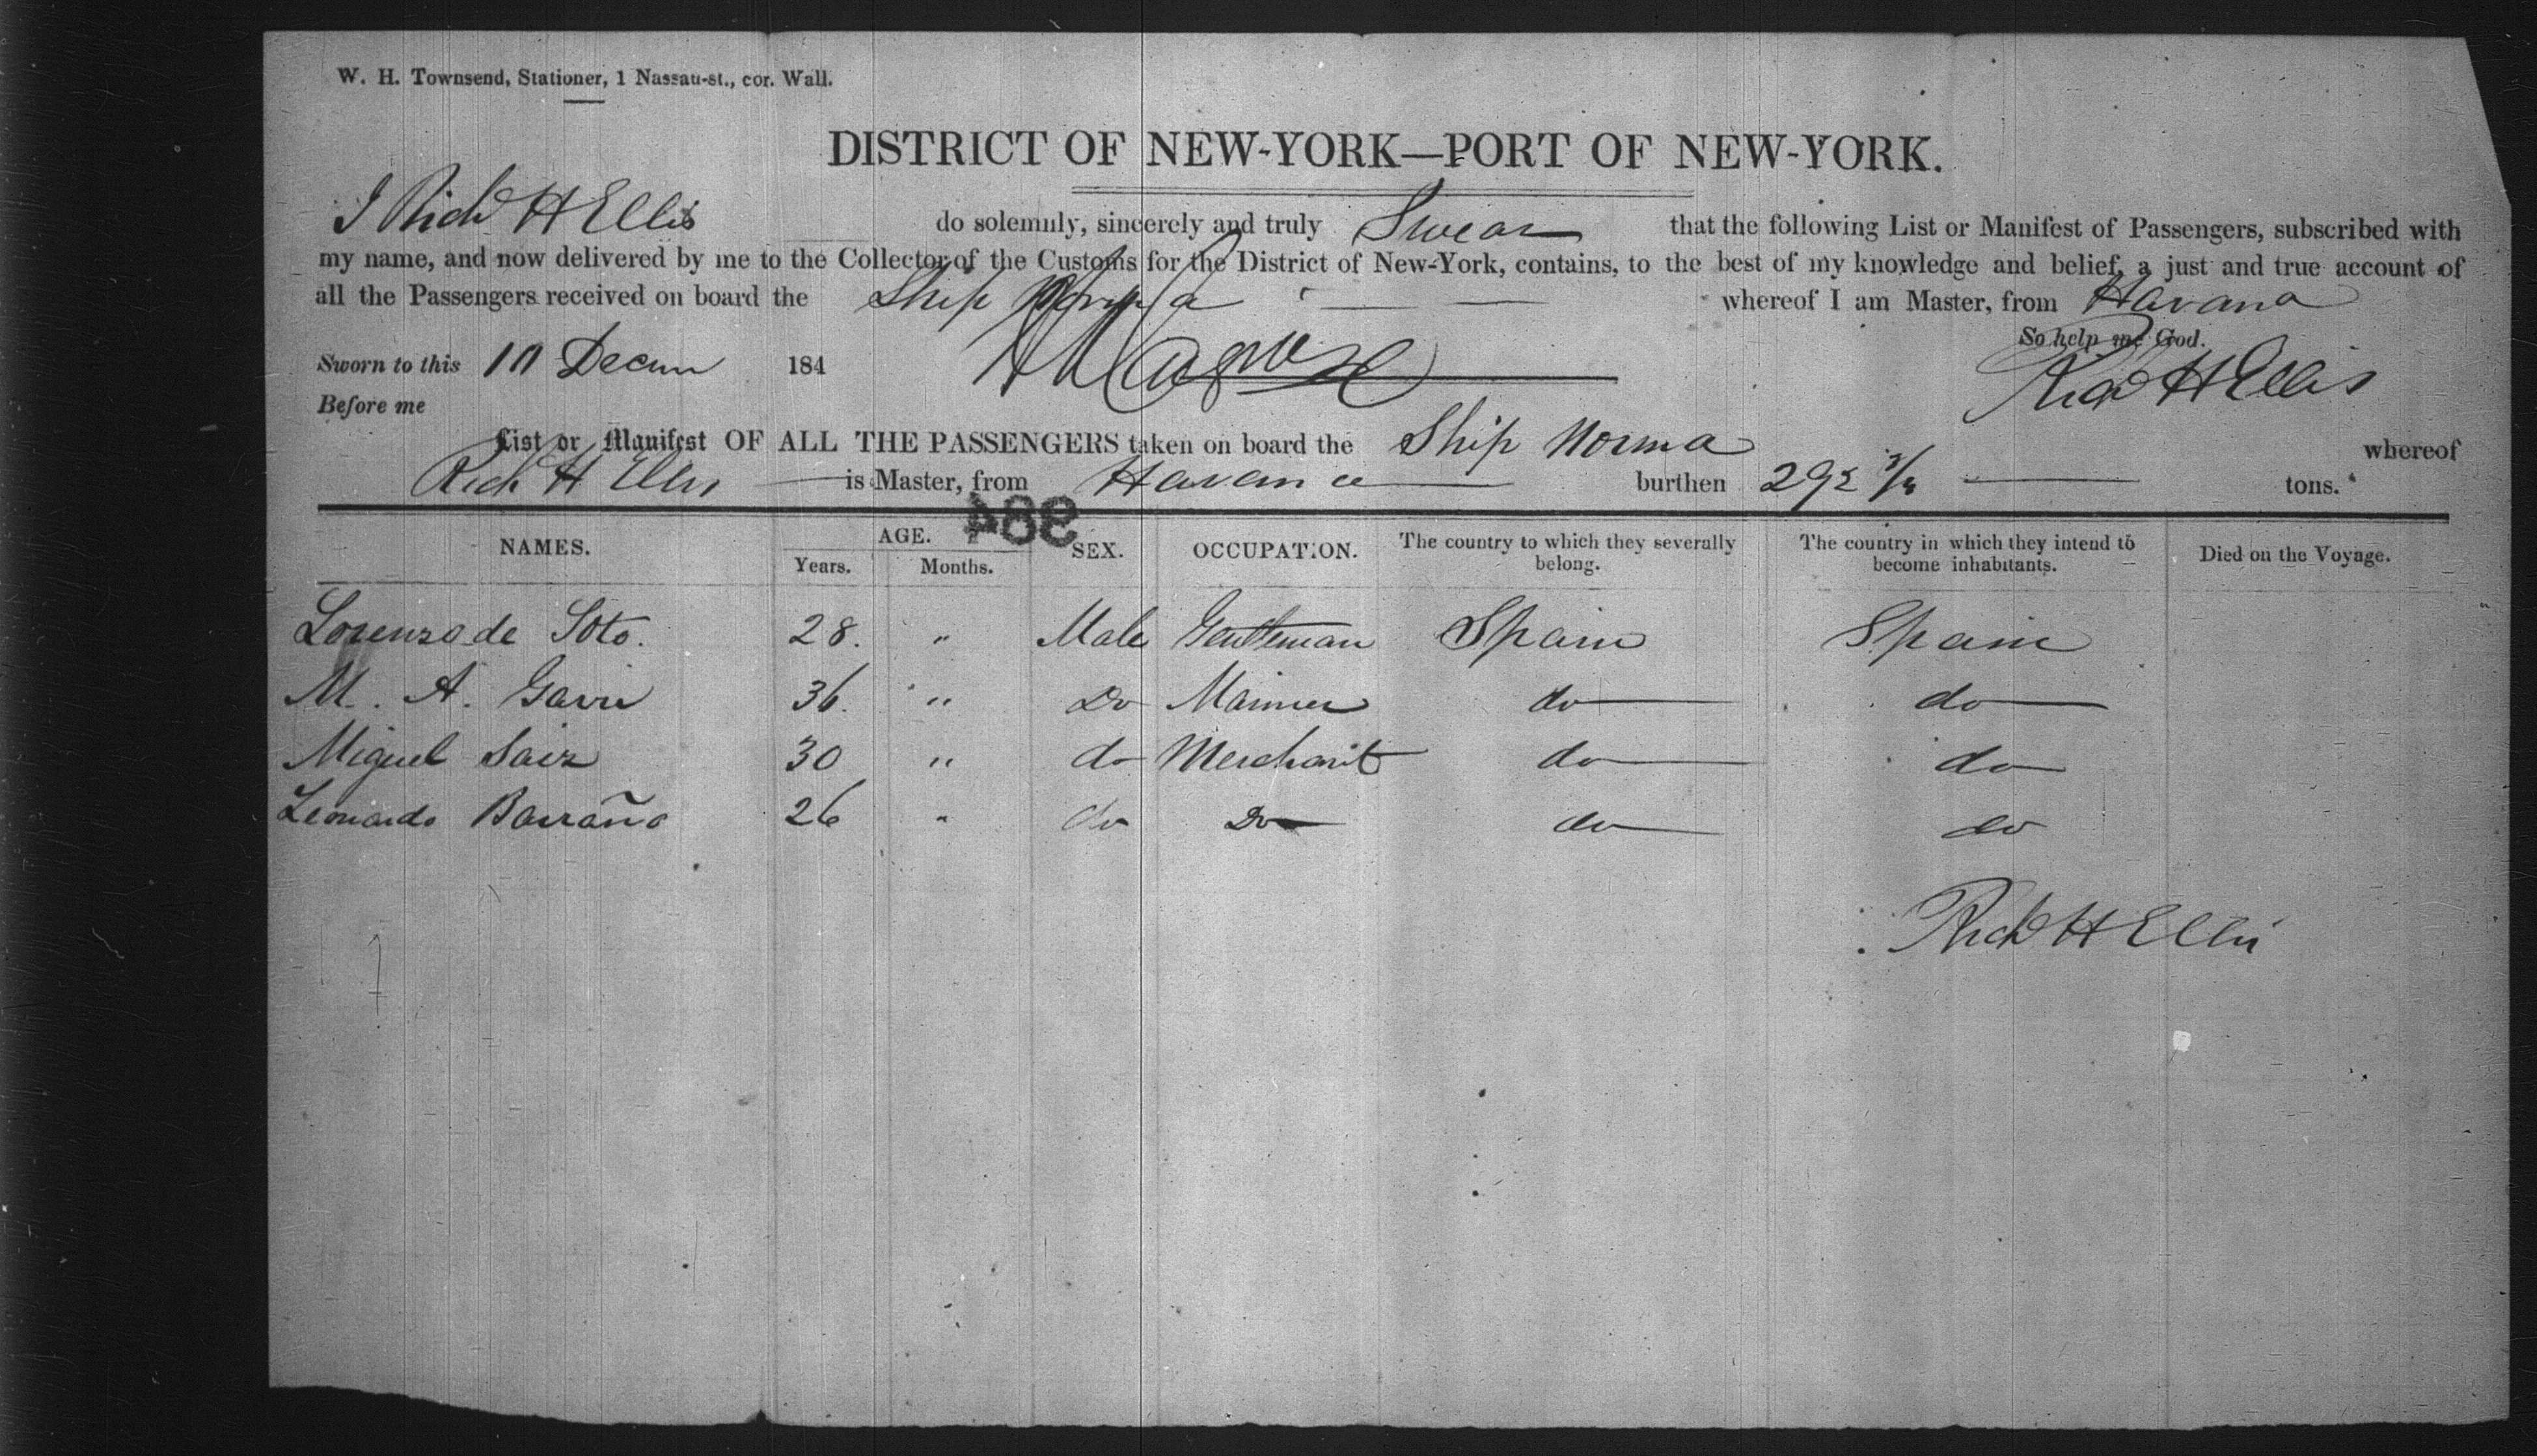 W. H. Townsend, Stationer, 1 Nassau-st., cor. Wall.
DISTRICT OF NEW-YORK—PORT OF NEW-YORK.
I Richd H Ellis do solemnly, sincerely and truly Swear that the following List or Manifest of Passengers, subscribed with
my name, and now delivered by me to the Collector of the Customs for the District of New-York, contains, to the best of my knowledge and belief, a just and true account of
all the Passengers received on board the Ship Norma whereof I am Master, from Havana
So help me God.
Sworn to this 10 Decem 184 Richd H Ellis
Before me
List or Manifest OF ALL THE PASSENGERS taken on board the Ship Norma whereof
Rich H Ellis is Master, from Havana burthen 292 tons.
984
NAMES. AGE. SEX. OCCUPATION. The country to which they severally belong. The country in which they intend to become inhabitants. Died on the Voyage.
Years. Months.
Lorenzo de Soto. 28. " Male Gentleman Spain Spain
M. A. 36. " Do Mariner do do
Miguel Saiz 30 " do Merchant do do
Leonardo Barraño 26 " do Do do do
Richd H Ellis